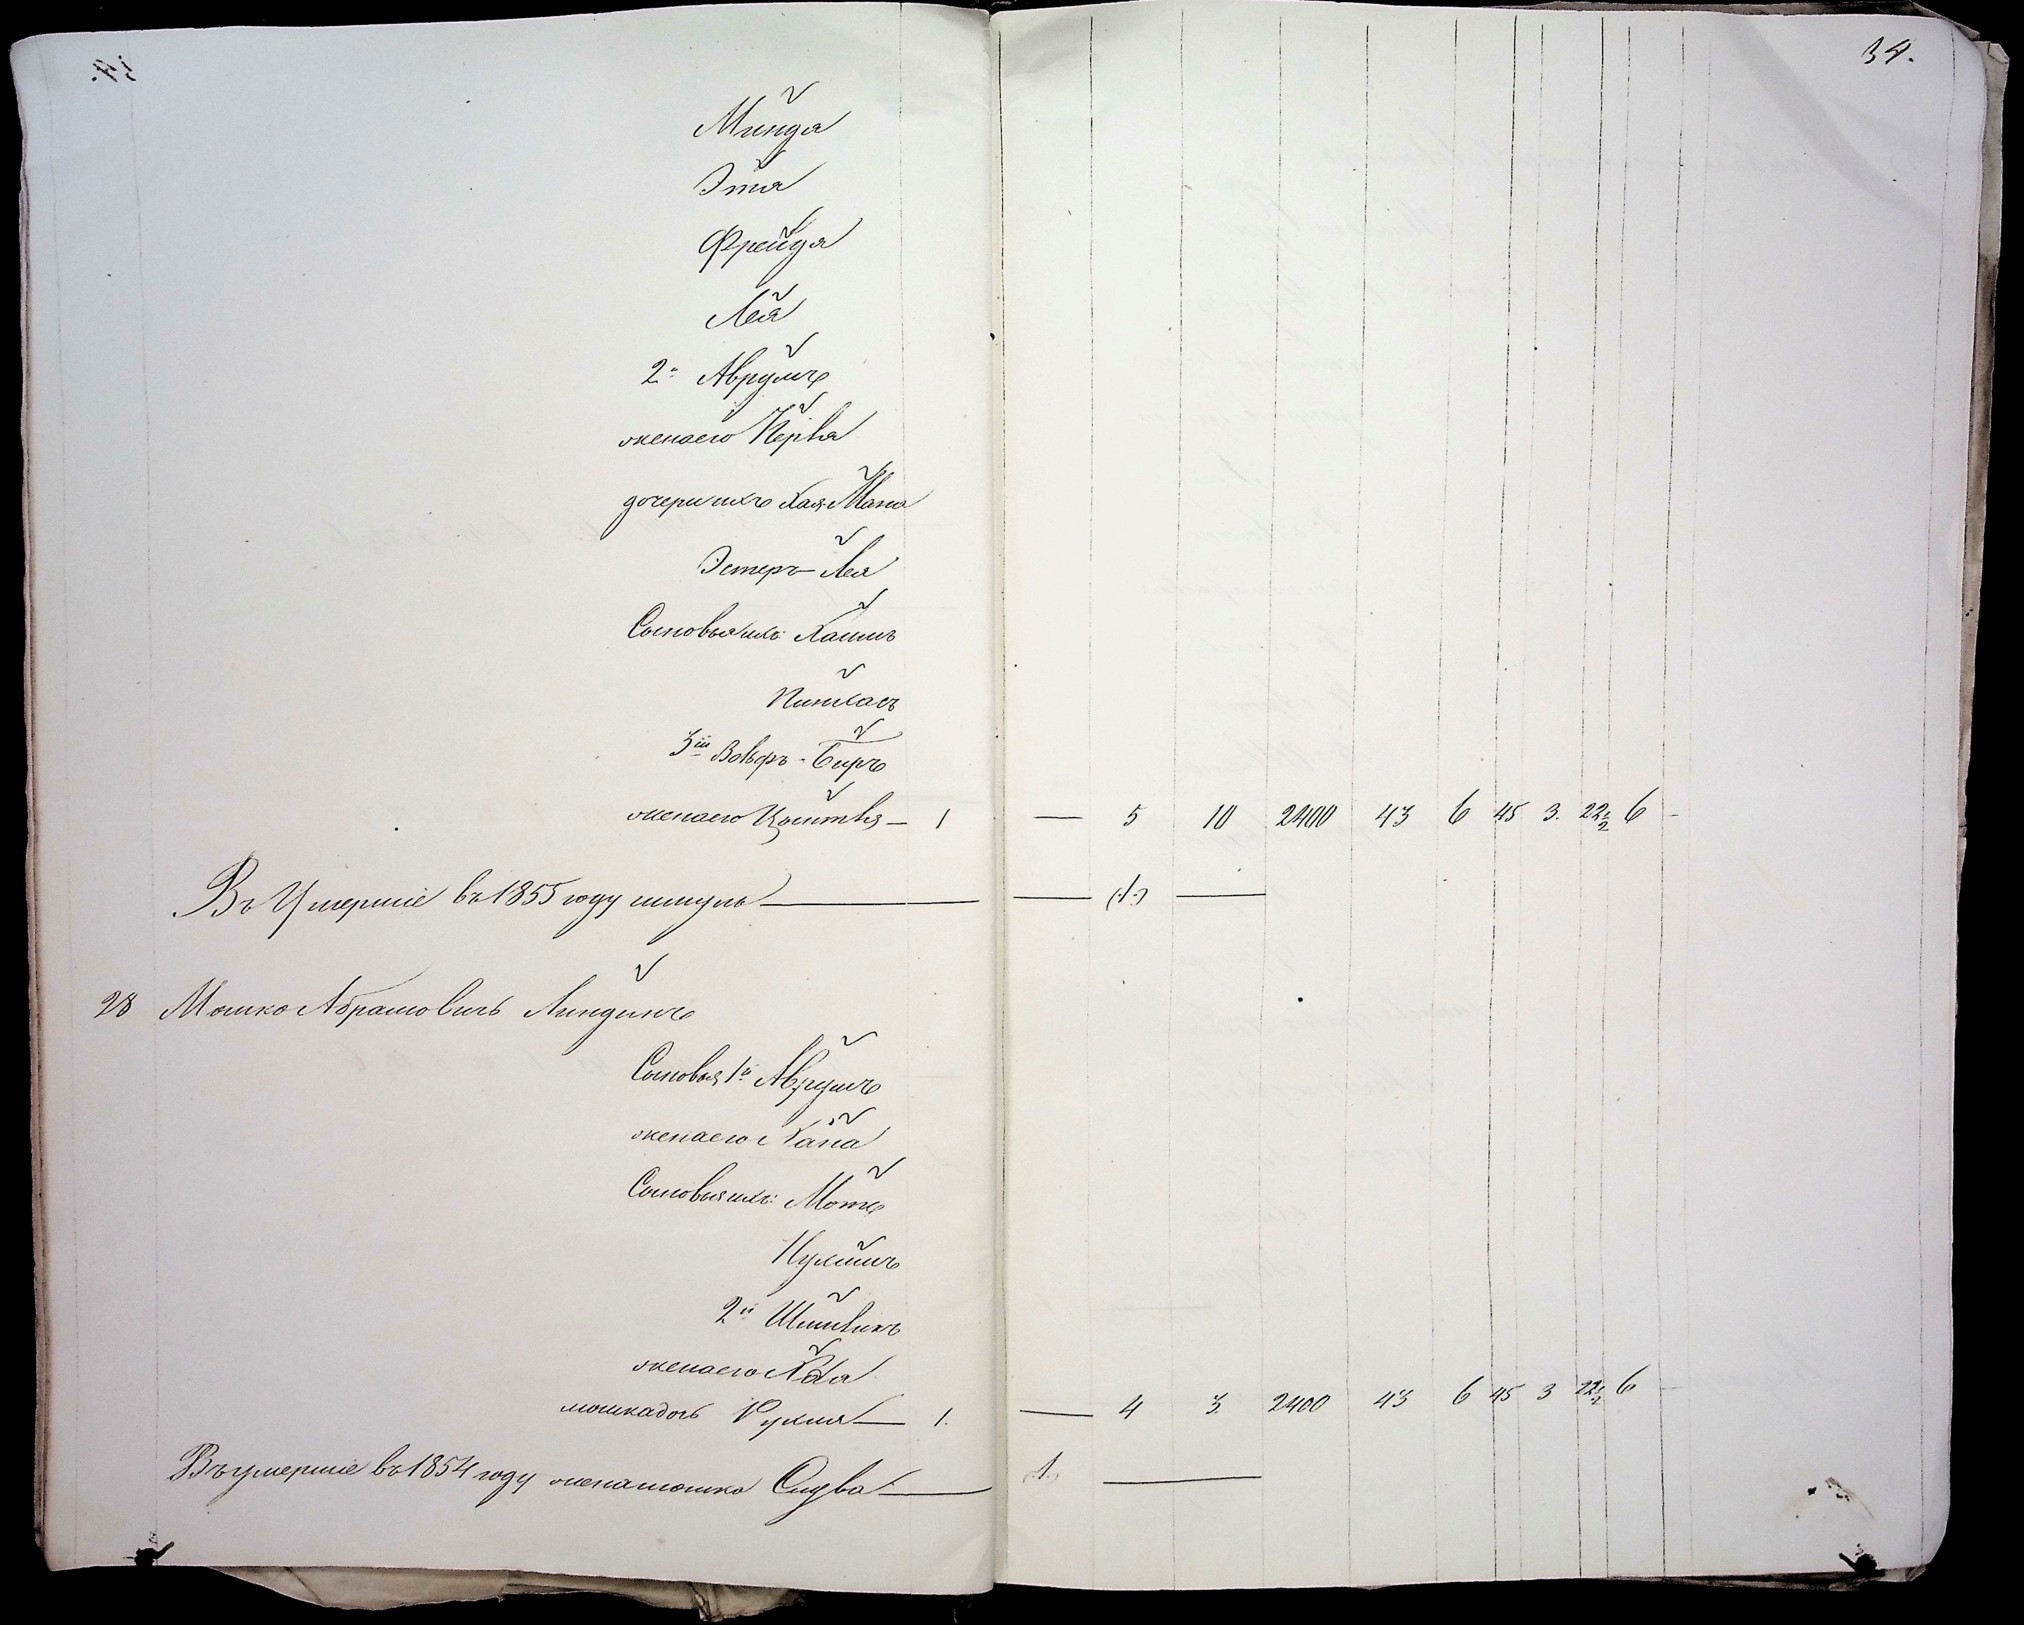 34.
Минда
Этя
Фрейда
Лея
2й Аврумъ
жена его Перля
дочери ихъ Хая-Мана
Эстеръ-Лея
Сыновья ихъ: Хаимъ
Пинхасъ
3ій Вольфъ-Беръ
жена его — 1 — 5 10 2400 43 6 45 3. 22½ 6 -
Въ Умершіе въ 1855 году шмуль — (1.) —
28 Мошко Абрамовичъ Линдинъ
Сыновья 1й Аврумъ
жена его Хана
Сыновья ихъ: Мотя
Нухимъ
2й
жена его Хая
мошка дочь Рухля — 1. — 4 3. 2400 43 6 45 3 22½ 6 -
Въ умершіе въ 1854 году жена мошка — (1.) —